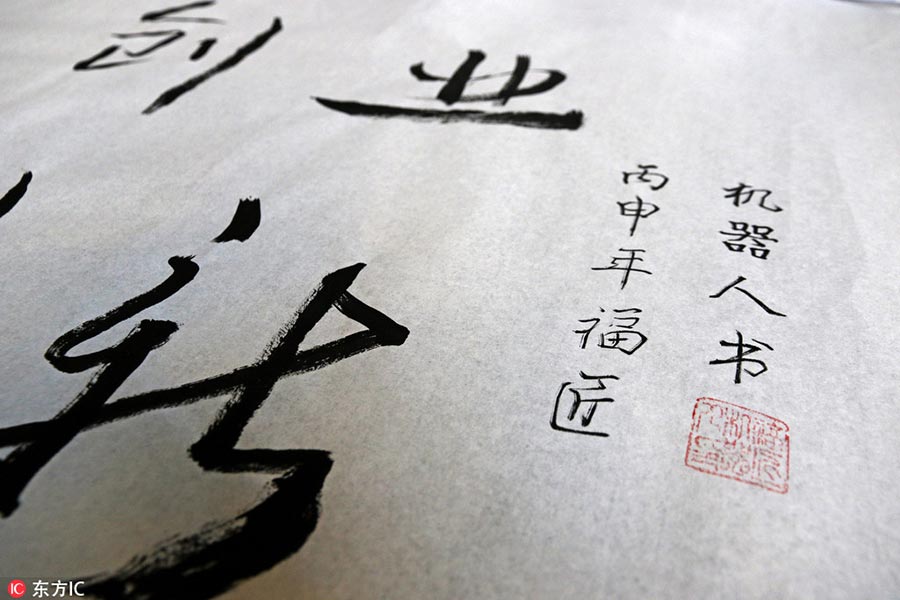 创业
丙申年福匠
机器人书
IC 东方IC